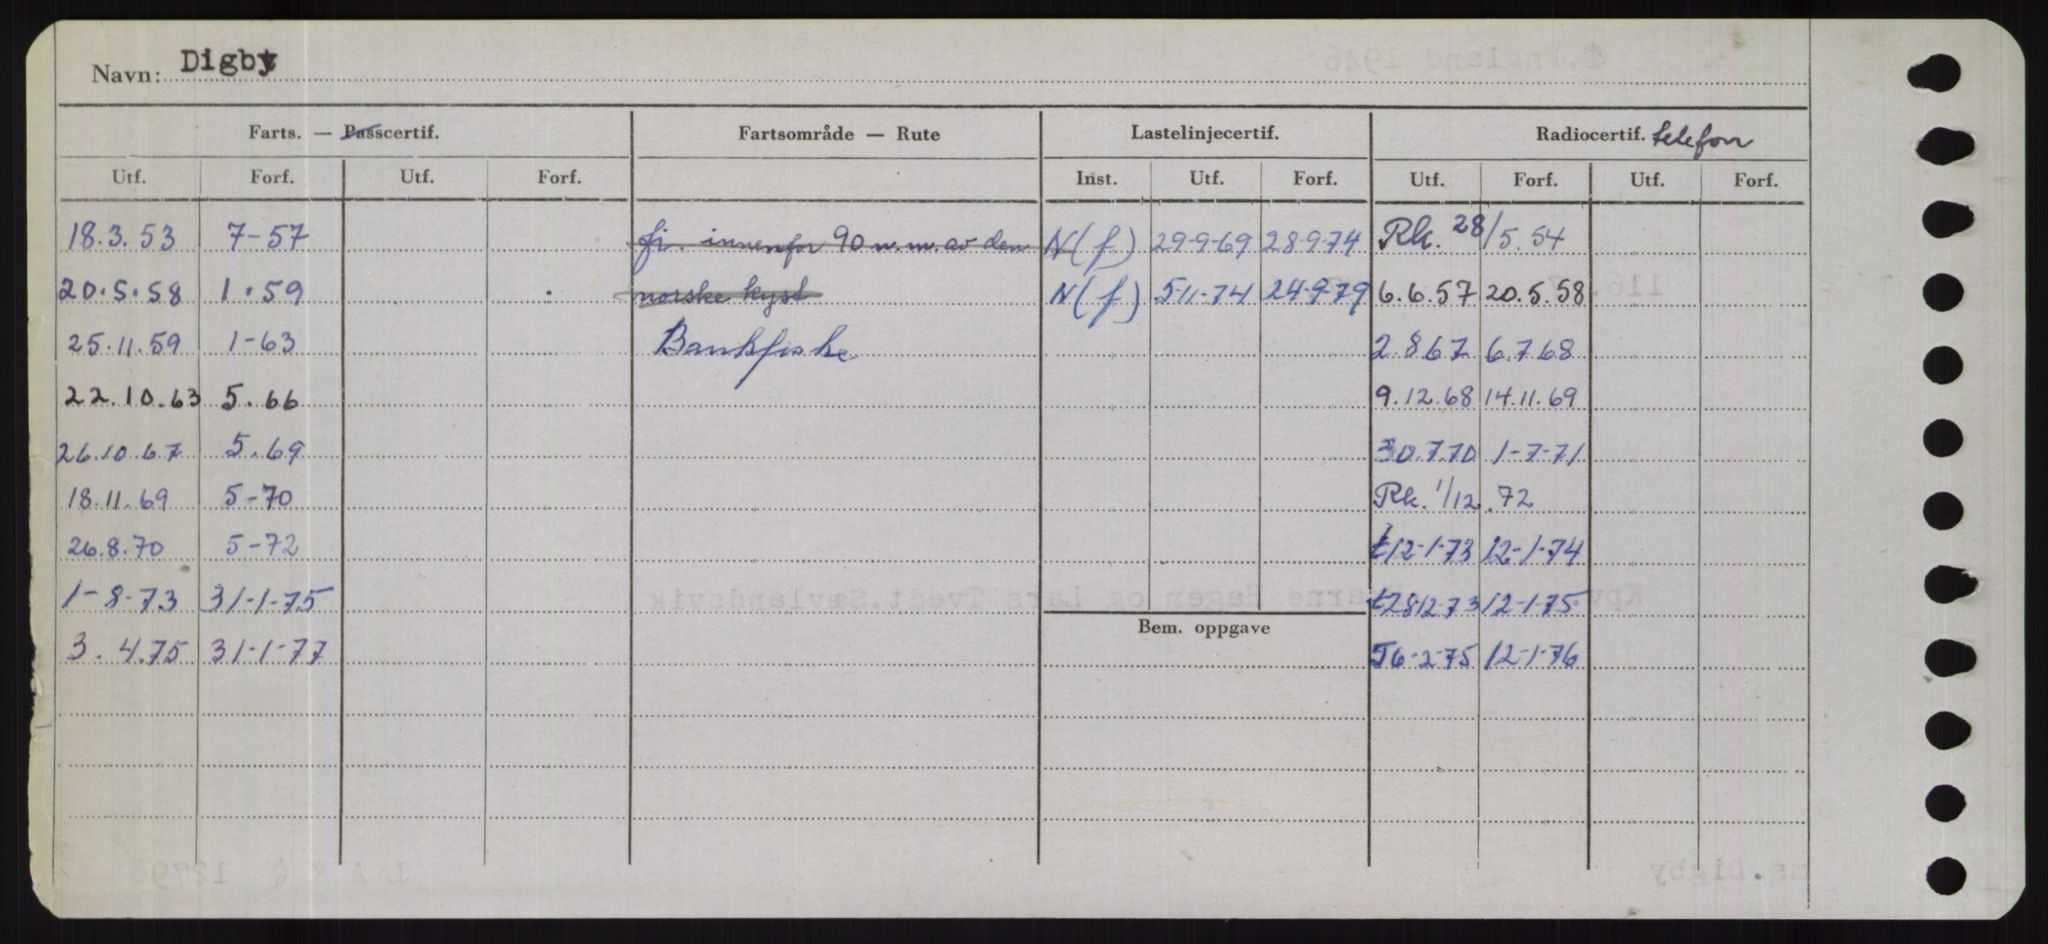 Navn: Digby
Farts. — Passcertif. Fartsområde — Rute Lastelinjecertif. Radiocertif. telefon
Utf. Forf. Utf. Forf. Inst. Utf. Forf. Utf. Forf. Utf. Forf.
18.3.53 7-57 fi. innenfor 90 n.m. av den N(f) 29-9-69 28-9-74 Rk. 28/5.54
20.5.58 1.59 norske kyst N(f) 5-11-74 24-9-79 6.6.57 20.5.58
25.11.59 1-63 Bankfiske 2.8.67 6.7.68
22.10.63 5.66 9.12.68 14.11.69
26.10.67 5.69 30.7.70 1-7-71
18.11.69 5-70 Rk. 1/12.72
26.8.70 5-72 t12-1-73 12-1-74
1-8-73 31-1-75 t28-12-73 12-1-75
Bem. oppgave
3.4.75 31-1-77 T6-2-75 12-1-76